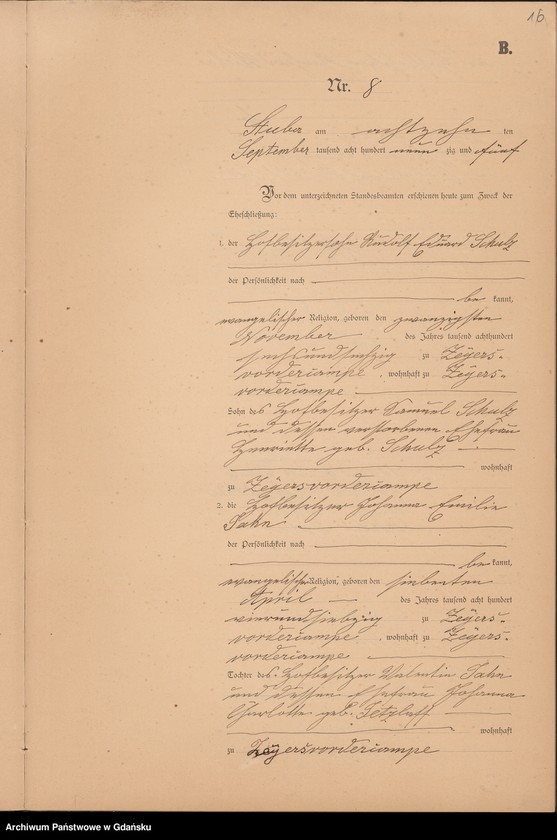 16
B.
Nr. 8
Stuba am achtzehn ten
September tausend acht hundert neun zig und fünf
Vor dem unterzeichneten Standesbeamten erschienen heute zum Zweck der
Eheschließung:
1. der Hofbesitzersohn Rudolf Eduard Schulz
der Persönlichkeit nach
be kannt,
evangelischer Religion, geboren den zwanzigsten
November des Jahres tausend achthundert
sechsundsechzig zu Zeyers-
vordercampe, wohnhaft zu Zeyers-
vordercampe
Sohn des Hofbesitzer Samuel Schulz
und dessen verstorbenen Ehefrau
Henriette geb. Schulz
wohnhaft
zu Zeyersvordercampe
2. die Johanna Emilie
Jahn
der Persönlichkeit nach
be kannt,
evangelische Religion, geboren den siebenten
April des Jahres tausend acht hundert
vierundsiebzig zu Zeyers-
vordercampe, wohnhaft zu Zeyers-
vordercampe
Tochter des Hofbesitzer Valentin Jahn
und dessen Ehefrau Johanna
Charlotte geb. Tetzlaff
wohnhaft
zu Zeyersvordercampe
Archiwum Państwowe w Gdańsku